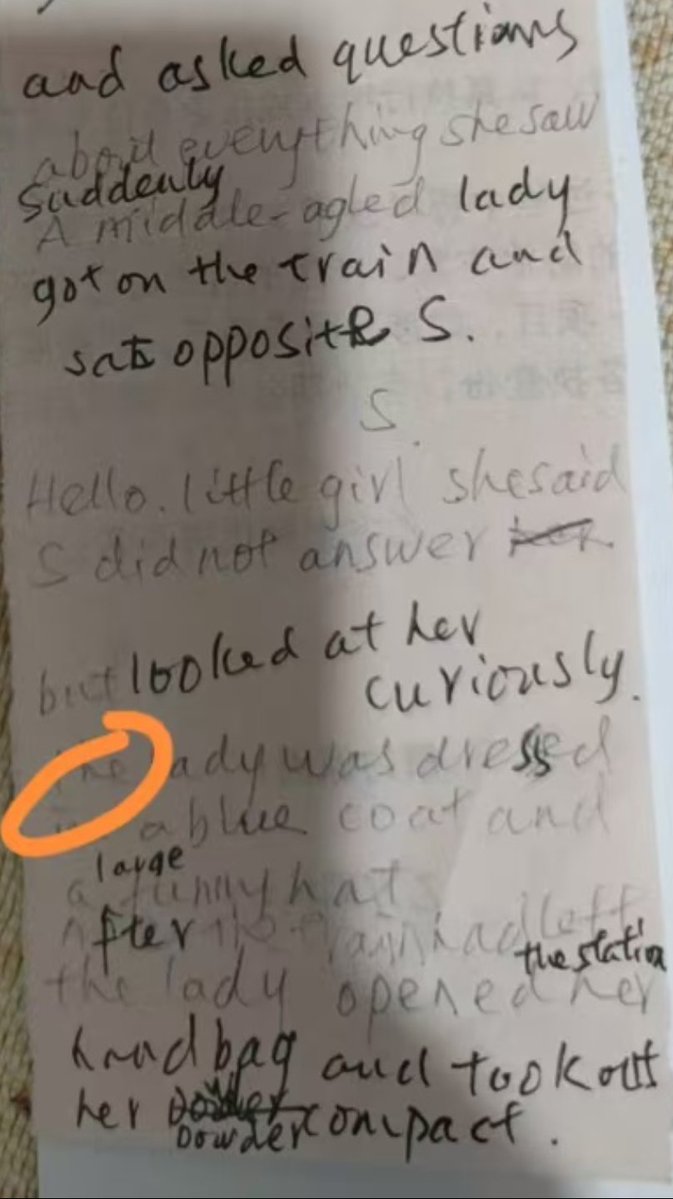 and asked questions
about everything she saw
Suddenly
A middle-agled lady
got on the train and
sat opposite S.
S.
Hello. little girl she said
S did not answer her
but looked at her
curiously.
the lady was dressed
in a blue coat and
large
a funny hat
After the train had left
the station
the lady opened her
handbag and took out
her powder compact.